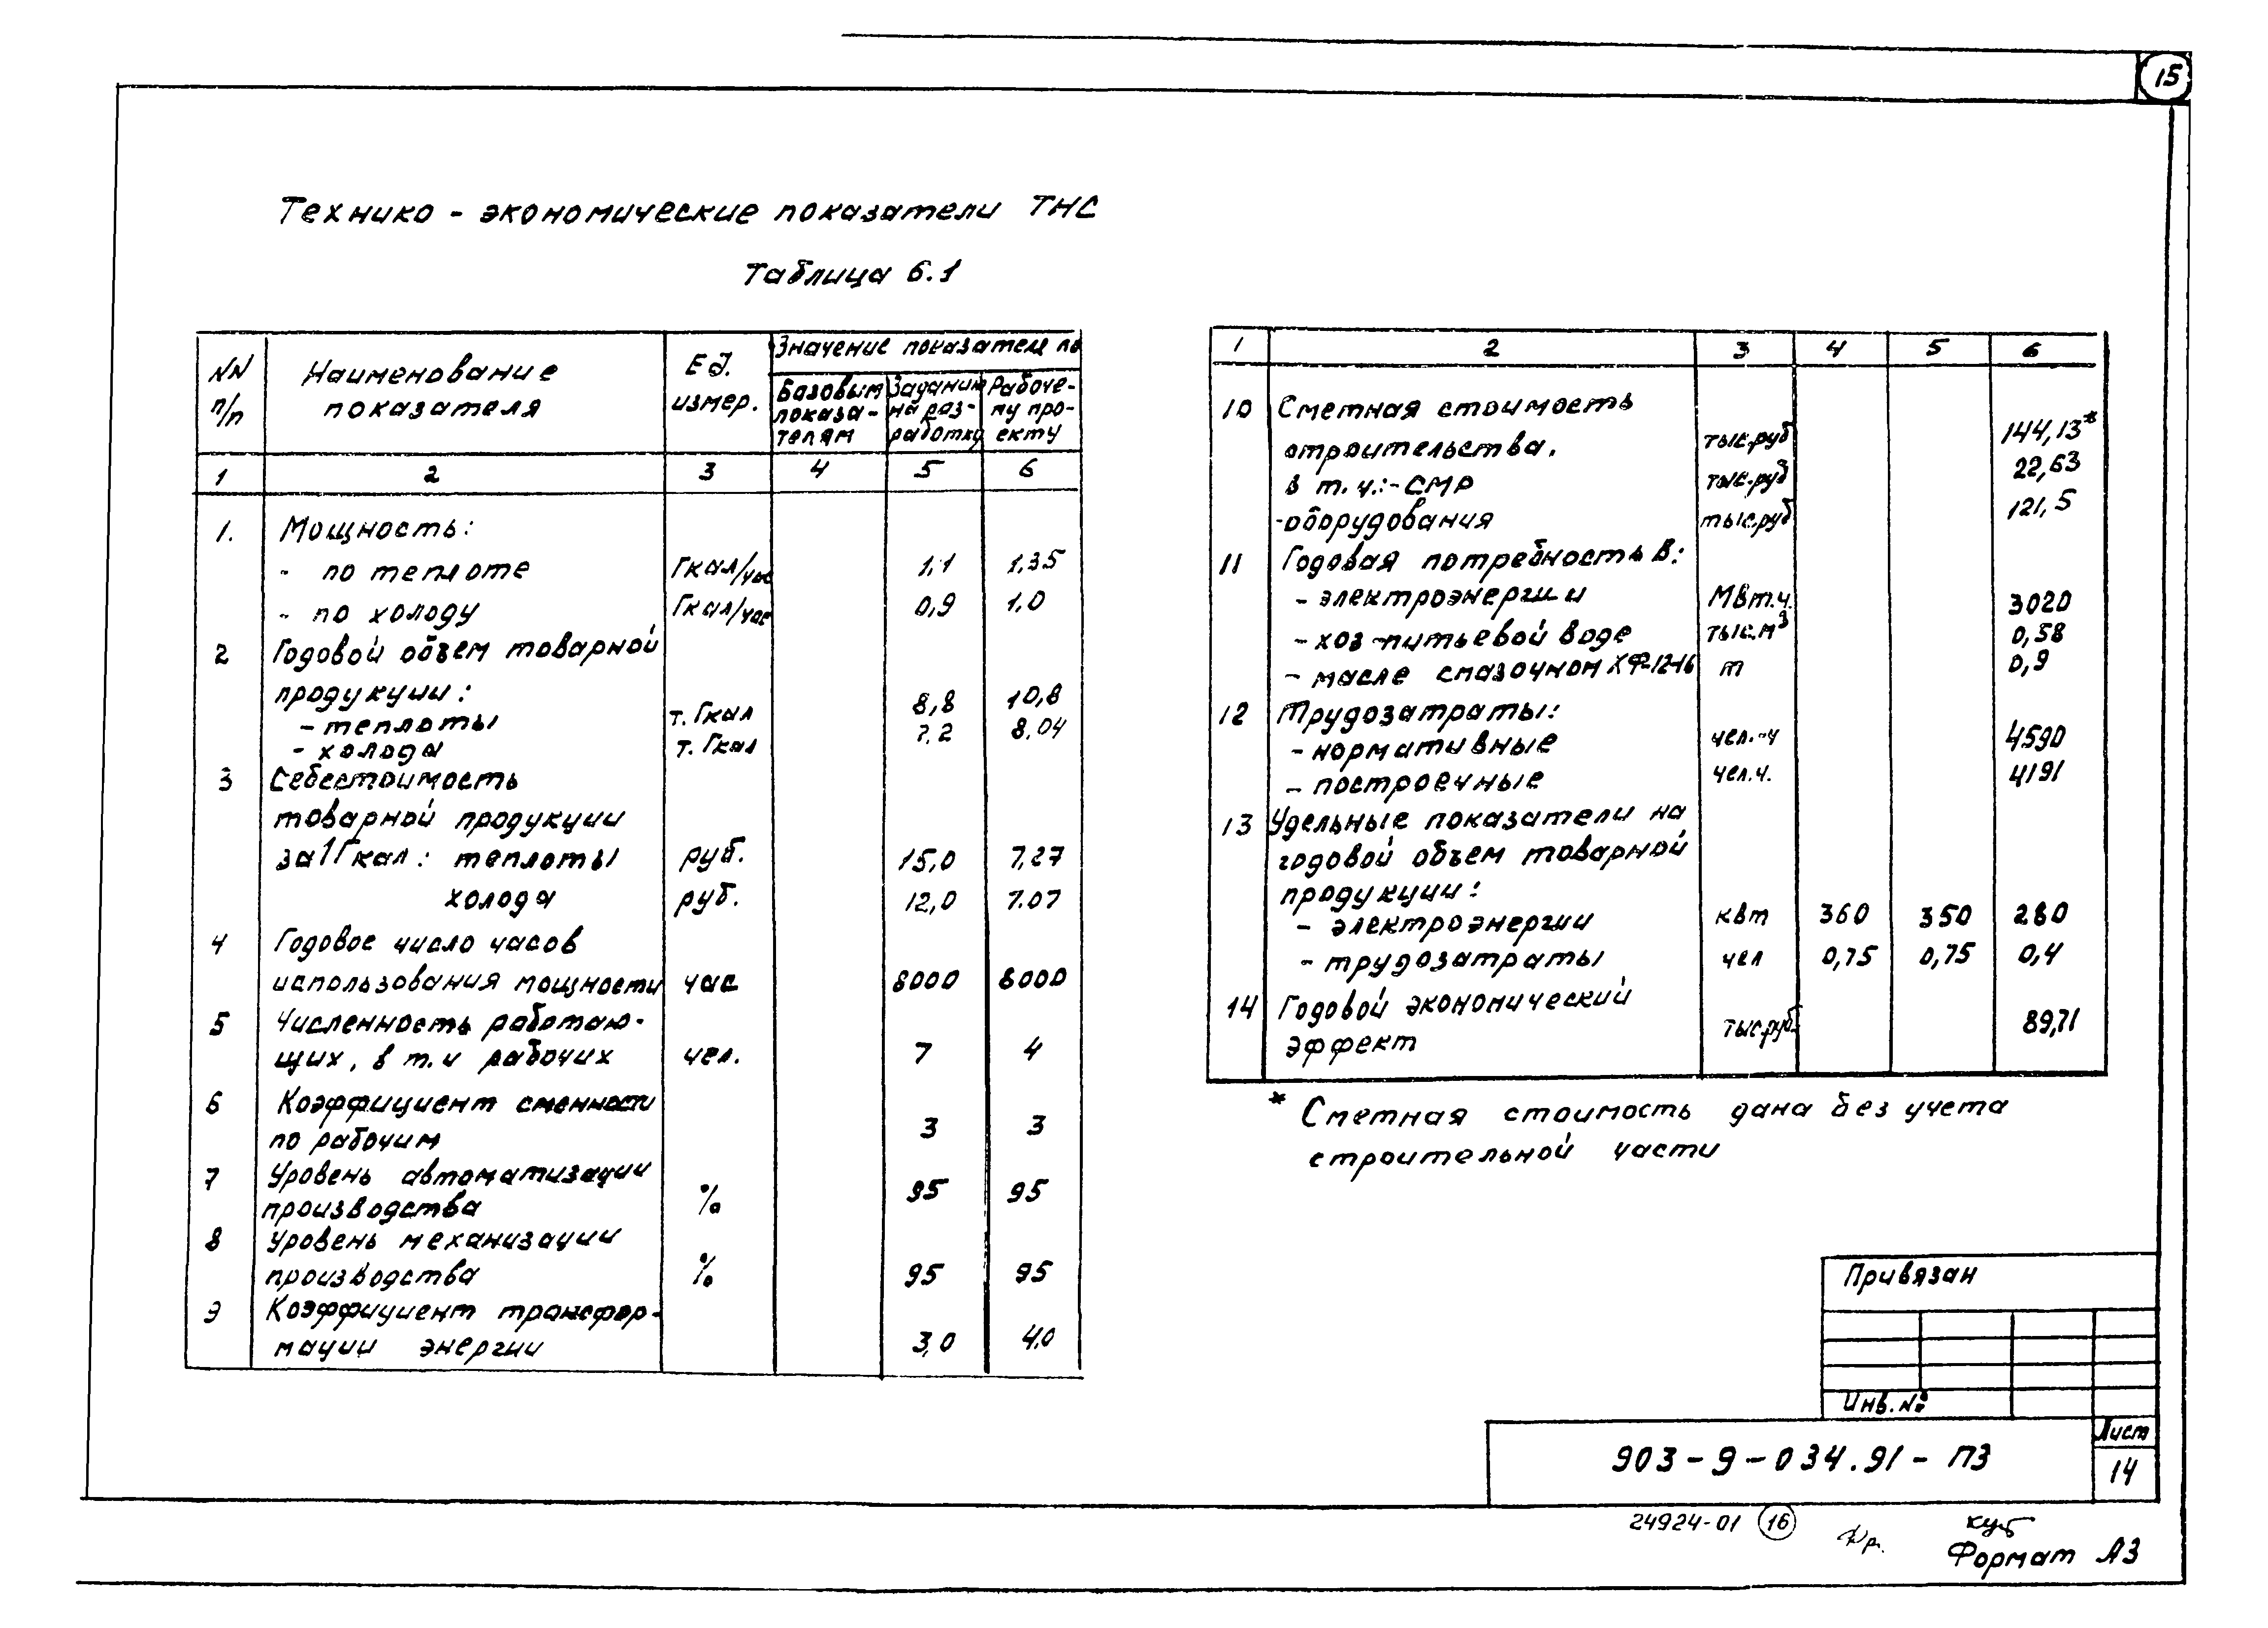 15
Технико - экономические показатели ТНС
Таблица 6.1
NN п/п | Наименование показателя | Ед. измер. | Значение показателя по
Базовым показа-телям | Заданию на раз-работку | Рабоче-му про-екту
1 2 3 4 5 6
1. Мощность:
- по теплоте Гкал/час 1.1 1.35
- по холоду Гкал/час 0,9 1,0
2 Годовой объем товарной
продукции:
- теплоты т. Гкал 8,8 10,8
- холода т. Гкал 7.2 8,04
3 Себестоимость
товарной продукции
за 1 Гкал: теплоты руб. 15,0 7,27
холода руб. 12,0 7.07
4 Годовое число часов
использования мощности час 8000 8000
5 Численность работаю-
щих, в т.ч рабочих чел. 7 4
6 Коэффициент сменности
по рабочим 3 3
7 Уровень автоматизации
производства % 95 95
8 Уровень механизации
производства % 95 95
9 Коэффициент трансфор-
мации энергии 3,0 4.0
1 2 3 4 5 6
10 Сметная стоимость
строительства. тыс.руб 144,13*
в т.ч.:-СМР тыс.руб 22,63
-оборудования тыс.руб 121,5
11 Годовая потребность в:
- электроэнергии МВт.ч. 3020
- хоз-питьевой воде тыс.м³ 0,58
- масле смазочном ХФ-12-16 т 0,9
12 Трудозатраты:
- нормативные чел.-ч 4590
- построечные чел.ч. 4191
13 Удельные показатели на
годовой объем товарной
продукции:
- электроэнергии квт 360 350 280
- трудозатраты чел 0,75 0,75 0,4
14 Годовой экономический
эффект тыс.руб. 89,71
* Сметная стоимость дана без учета
строительной части
Привязан
Инв. №
903-9-034.91-ПЗ
Лист
14
24924-01 16
Формат А3